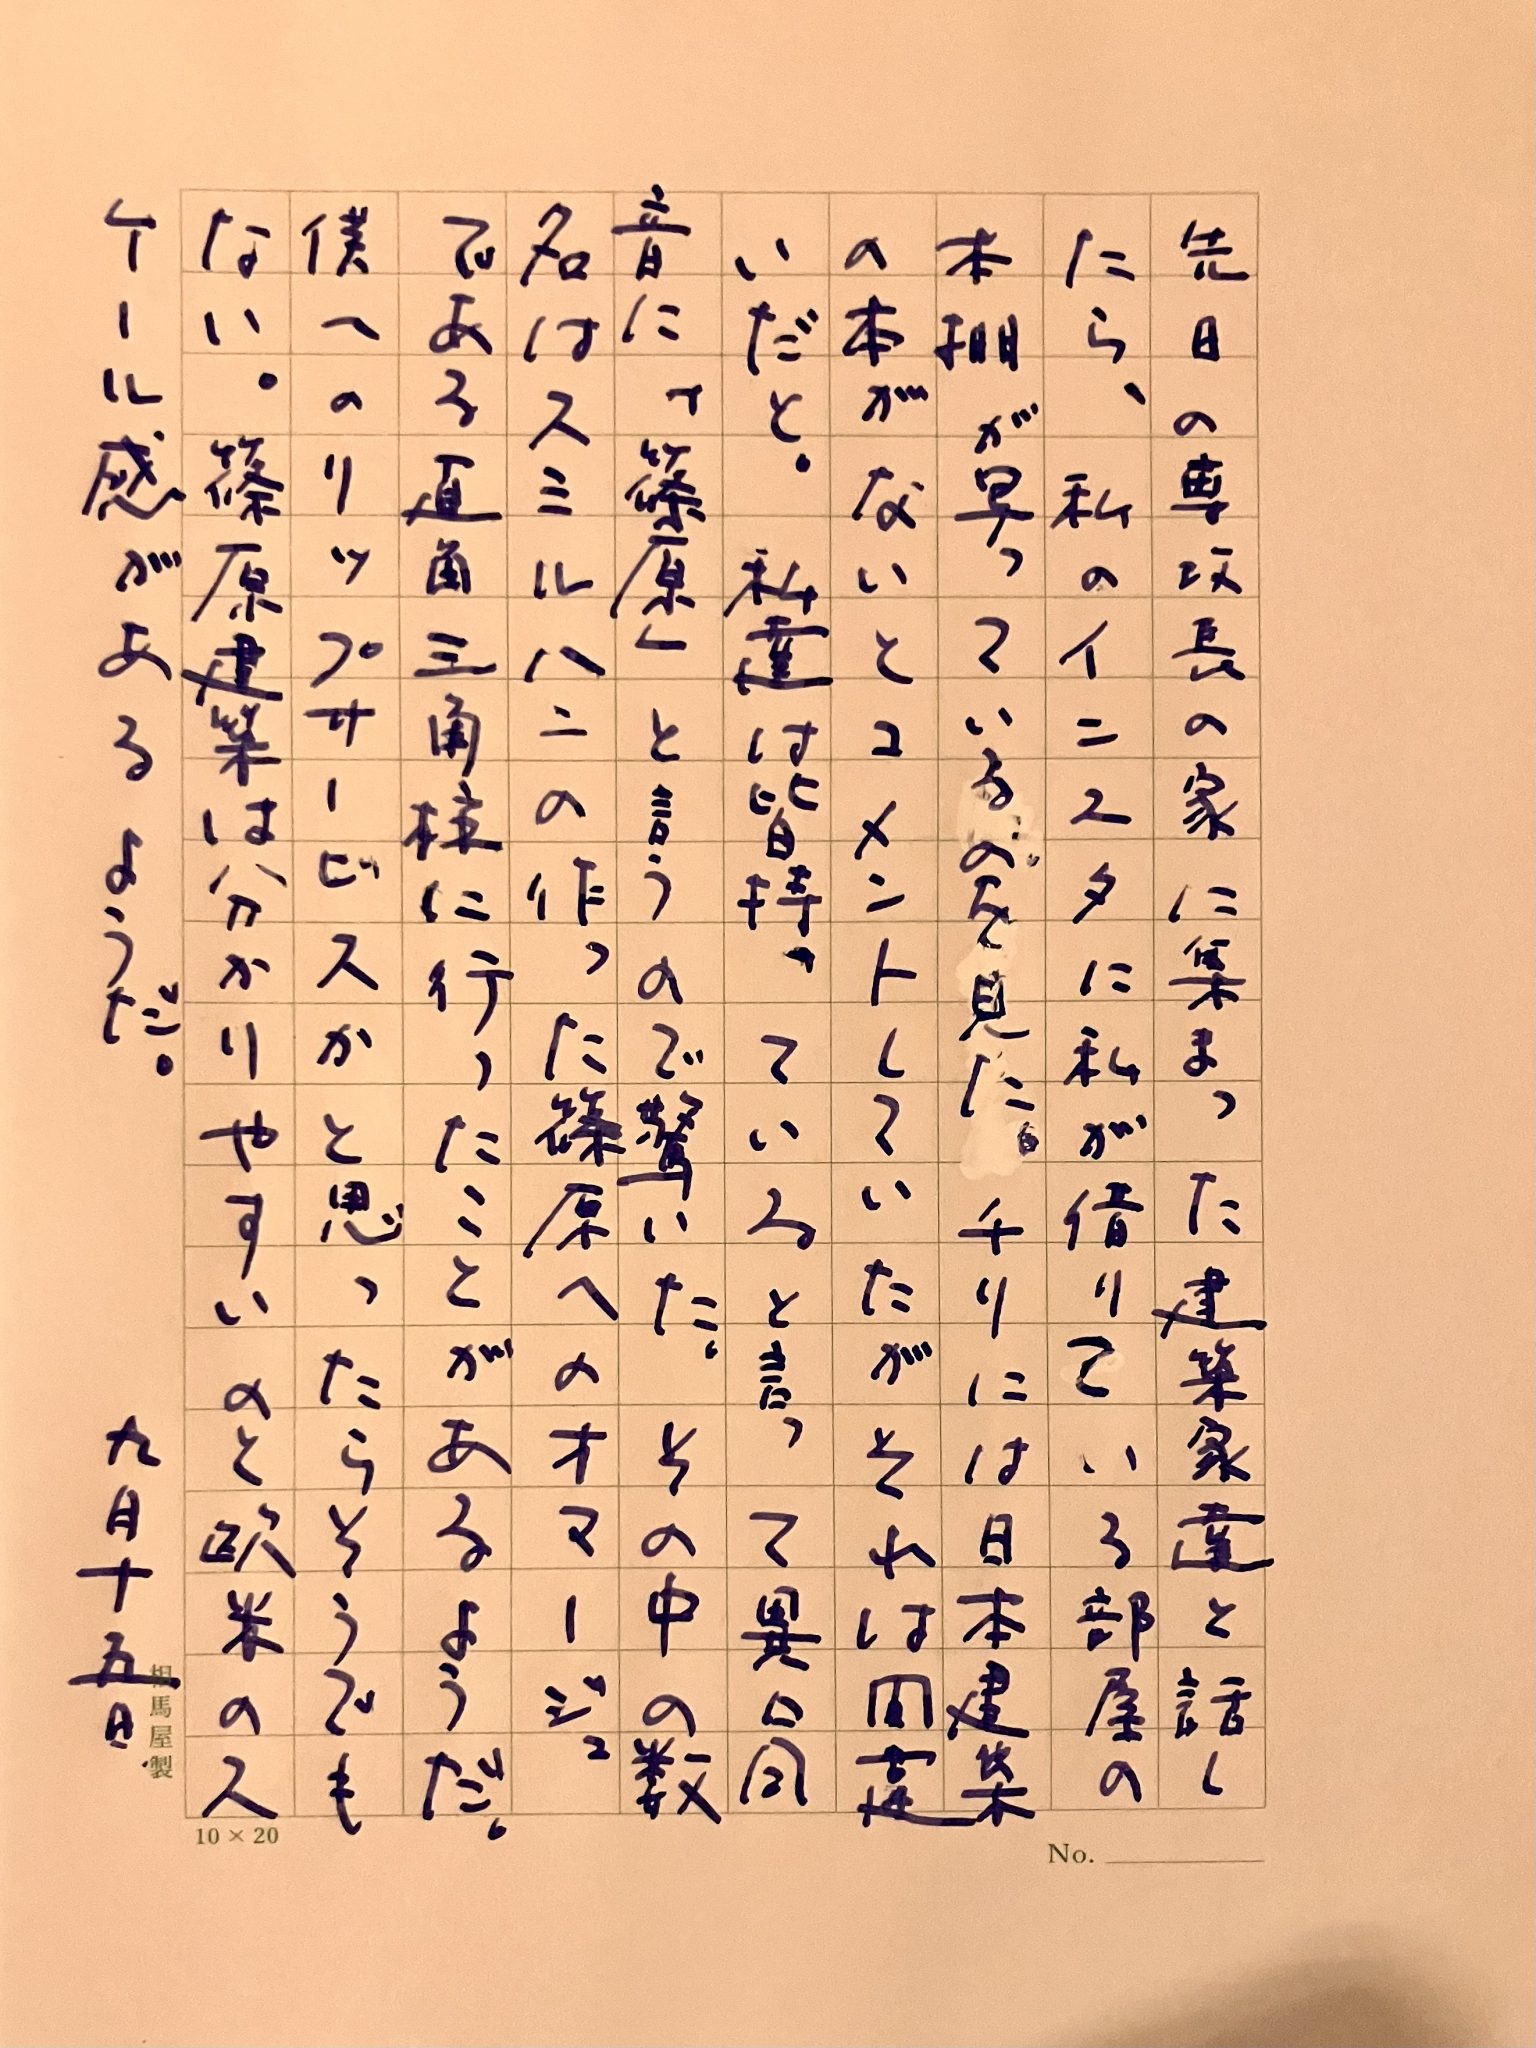 先日の専攻長の家に集まった建築家達と話し
たら、私のインスタに私が借りている部屋の
本棚が写っているのを見た。チリには日本建築
の本がないとコメントしていたがそれは間違
いだと。私達は皆持っていると言って異口同
音に「篠原」と言うので驚いた。その中の数
名はスミルハンの作った篠原へのオマージュ
である直角三角柱に行ったことがあるようだ。
僕へのリップサービスかと思ったらそうでも
ない。篠原建築は分かりやすいのと欧米のス
ケール感があるようだ。
九月十五日
相馬屋製
10×20
No.